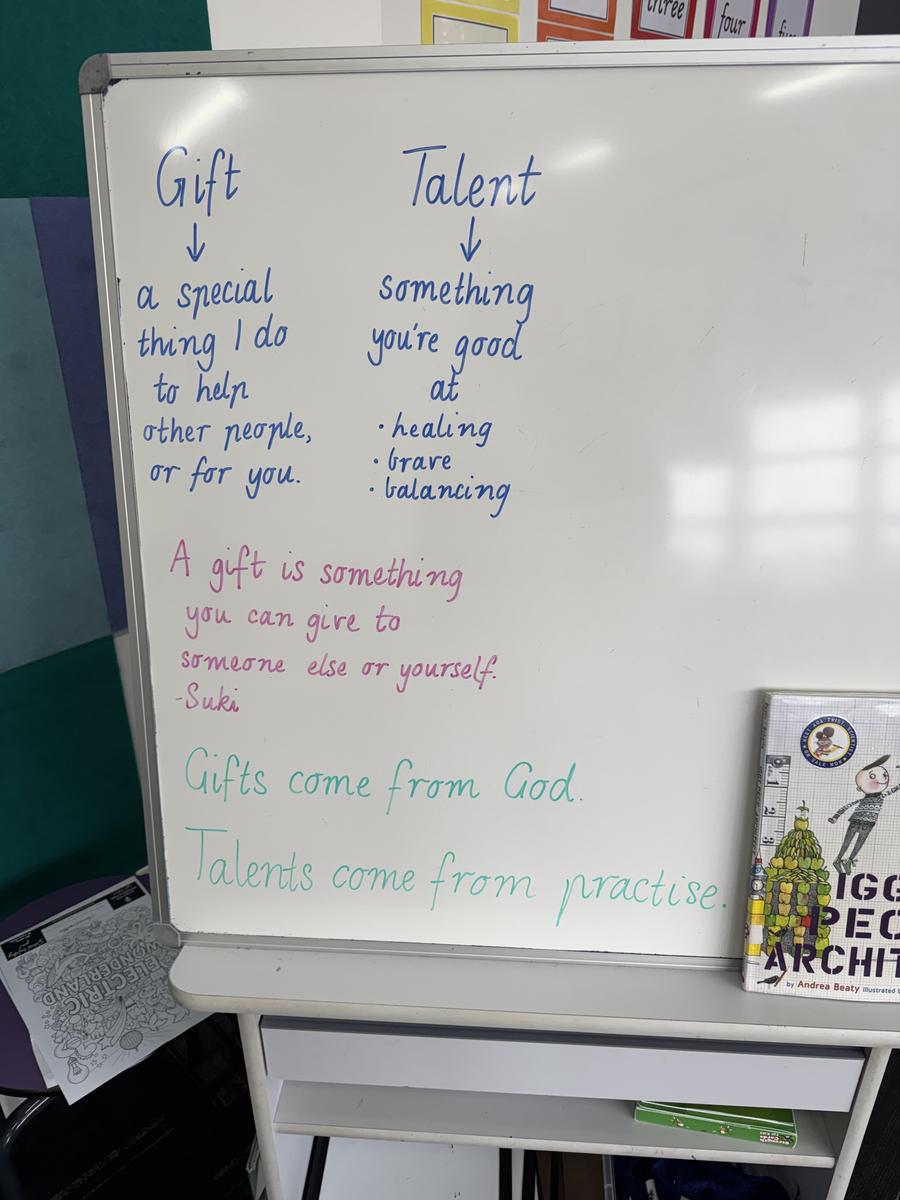 three
four
Gift
↓
a special
thing I do
to help
other people,
or for you.
Talent
↓
something
you're good
at
• healing
• brave
• balancing
A gift is something
you can give to
someone else or yourself.
-Suki
Gifts come from God.
Talents come from practise.
IGG
PEC
ARCHIT
by Andrea Beaty illustrated
ELECTRIC
WONDERLAND